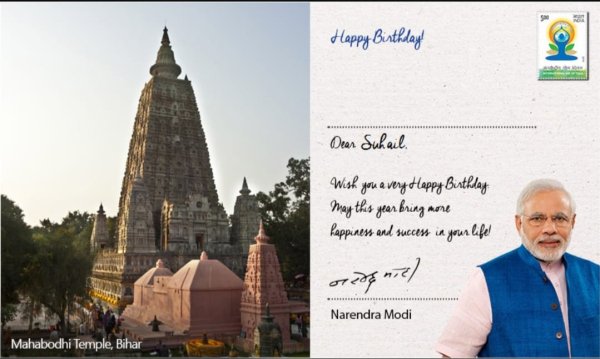 Happy Birthday!
5.00 भारत INDIA
INTERNATIONAL DAY OF YOGA
Dear Suhail,
Wish you a very Happy Birthday.
May this year bring more
happiness and success in your life!
नरेन्द्र मोदी
Narendra Modi
Mahabodhi Temple, Bihar